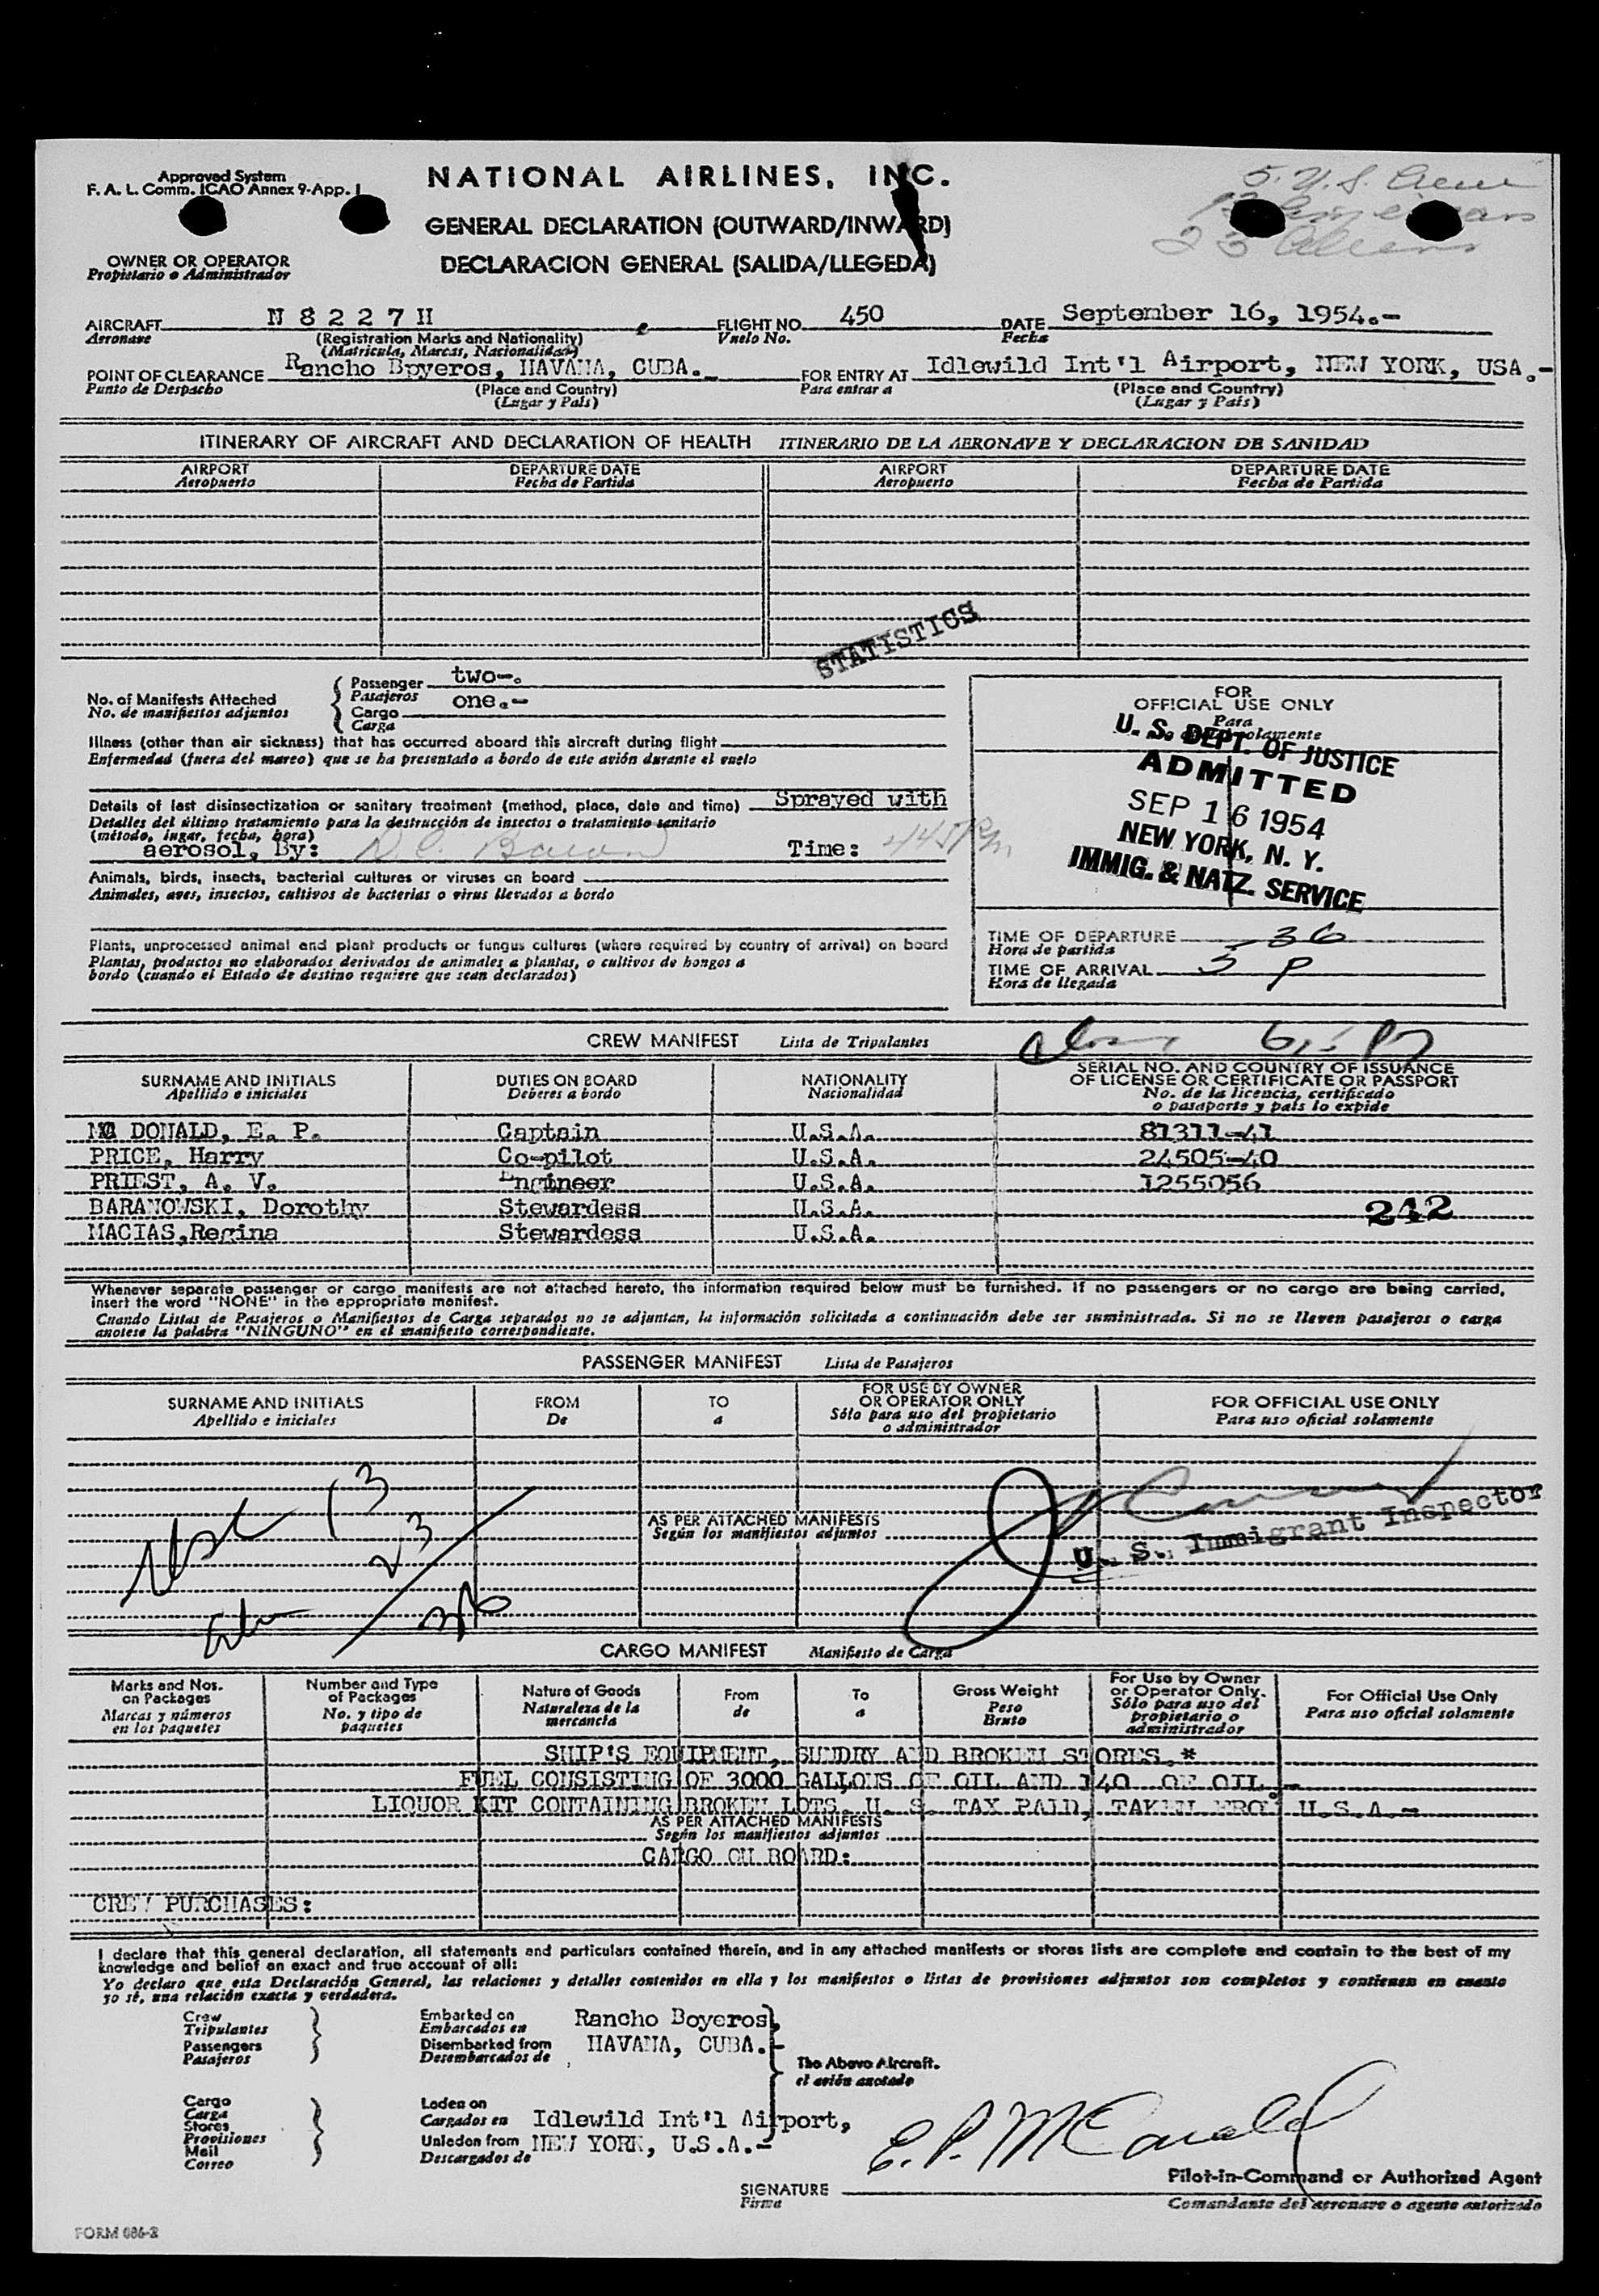 Approved System
F. A. L. Comm. ICAO Annex 9-App. I
NATIONAL AIRLINES, INC.
5 U.S. Crew
GENERAL DECLARATION (OUTWARD/INWARD)
23 Aliens
OWNER OR OPERATOR
Propietario o Administrador
DECLARACION GENERAL (SALIDA/LLEGEDA)
AIRCRAFT N 8 2 2 7 H FLIGHT NO. 450 DATE September 16, 1954.-
Aeronave (Registration Marks and Nationality) Vuelo No. Fecha
(Matricula, Marcas, Nacionalidad)
POINT OF CLEARANCE Rancho Bpyeros, HAVANA, CUBA.- FOR ENTRY AT Idlewild Int'l Airport, NEW YORK, USA.-
Punto de Despacho (Place and Country) Para entrar a (Place and Country)
(Lugar y País) (Lugar y País)
ITINERARY OF AIRCRAFT AND DECLARATION OF HEALTH ITINERARIO DE LA AERONAVE Y DECLARACION DE SANIDAD
AIRPORT DEPARTURE DATE AIRPORT DEPARTURE DATE
Aeropuerto Fecha de Partida Aeropuerto Fecha de Partida
STATISTICS
No. of Manifests Attached
No. de manifiestos adjuntos
Passenger two-.
Pasajeros
Cargo one.-
Carga
Illness (other than air sickness) that has occurred aboard this aircraft during flight
Enfermedad (fuera del mareo) que se ha presentado a bordo de este avión durante el vuelo
Details of last disinsectization or sanitary treatment (method, place, date and time) Sprayed with
Detalles del último tratamiento para la destrucción de insectos o tratamiento sanitario
(método, lugar, fecha, hora)
aerosol, By: Time: 445 Pm
Animals, birds, insects, bacterial cultures or viruses on board
Animales, aves, insectos, cultivos de bacterias o virus llevados a bordo
Plants, unprocessed animal and plant products or fungus cultures (where required by country of arrival) on board
Plantas, productos no elaborados derivados de animales a plantas, o cultivos de hongos a
bordo (cuando el Estado de destino requiere que sean declarados)
FOR
OFFICIAL USE ONLY
Para
solamente
U. S. DEPT. OF JUSTICE
ADMITTED
SEP 16 1954
NEW YORK, N. Y.
IMMIG. & NATZ. SERVICE
TIME OF DEPARTURE 36
Hora de partida
TIME OF ARRIVAL 5 P
Hora de llegada
CREW MANIFEST Lista de Tripulantes
SURNAME AND INITIALS DUTIES ON BOARD NATIONALITY SERIAL NO. AND COUNTRY OF ISSUANCE
Apellido e iniciales Deberes a bordo Nacionalidad OF LICENSE OR CERTIFICATE OR PASSPORT
No. de la licencia, certificado
o pasaporte y país lo expide
MC DONALD, E. P. Captain U.S.A. 81311-41
PRICE, Harry Co-pilot U.S.A. 24505-40
PRIEST, A. V. Engineer U.S.A. 1255056
BARANOWSKI, Dorothy Stewardess U.S.A. 242
MACIAS,Regina Stewardess U.S.A.
Whenever separate passenger or cargo manifests are not attached hereto, the information required below must be furnished. If no passengers or no cargo are being carried,
insert the word "NONE" in the appropriate manifest.
Cuando Listas de Pasajeros o Manifiestos de Carga separados no se adjuntan, la información solicitada a continuación debe ser suministrada. Si no se lleven pasajeros o carga
anotese la palabra "NINGUNO" en el manifiesto correspondiente.
PASSENGER MANIFEST Lista de Pasajeros
SURNAME AND INITIALS FROM TO FOR USE BY OWNER FOR OFFICIAL USE ONLY
Apellido e iniciales De a OR OPERATOR ONLY Para uso oficial solamente
Sólo para uso del propietario
o administrador
13
23
36
AS PER ATTACHED MANIFESTS
Según los manifiestos adjuntos
U. S. Immigrant Inspector
CARGO MANIFEST Manifiesto de Carga
Marks and Nos. on Packages Number and Type of Packages Nature of Goods From To Gross Weight For Use by Owner or Operator Only. For Official Use Only
Marcas y números en los paquetes No. y tipo de paquetes Naturaleza de la mercancía de a Peso Bruto Sólo para uso del propietario o administrador Para uso oficial solamente
SHIP'S EQUIPMENT, SUNDRY AND BROKEN STORES.*
FUEL CONSISTING OF 3000 GALLONS OF OIL AND 140 OF OIL -
LIQUOR KIT CONTAINING BROKEN LOTS. U. S. TAX PAID, TAKEN FROM U.S.A.-
AS PER ATTACHED MANIFESTS
Según los manifiestos adjuntos
CARGO ON BOARD:
CREW PURCHASES:
I declare that this general declaration, all statements and particulars contained therein, and in any attached manifests or stores lists are complete and contain to the best of my
knowledge and belief an exact and true account of all:
Yo declaro que esta Declaración General, las relaciones y detalles contenidos en ella y los manifiestos o listas de provisiones adjuntos son completos y contienen en cuanto
yo sé, una relación exacta y verdadera.
Crew
Tripulantes
Passengers
Pasajeros
Embarked on Rancho Boyeros,
Embarcados en
Disembarked from HAVANA, CUBA.-
Desembarcados de
The Above Aircraft.
el avión anotado
Cargo
Carga
Stores
Provisiones
Mail
Correo
Laden on
Cargados en Idlewild Int'l Airport,
Unladen from NEW YORK, U.S.A.-
Descargados de
E. P. McDonald
Pilot-in-Command or Authorized Agent
SIGNATURE
Firma Comandante del aeronave o agente autorizado
FORM 086-2